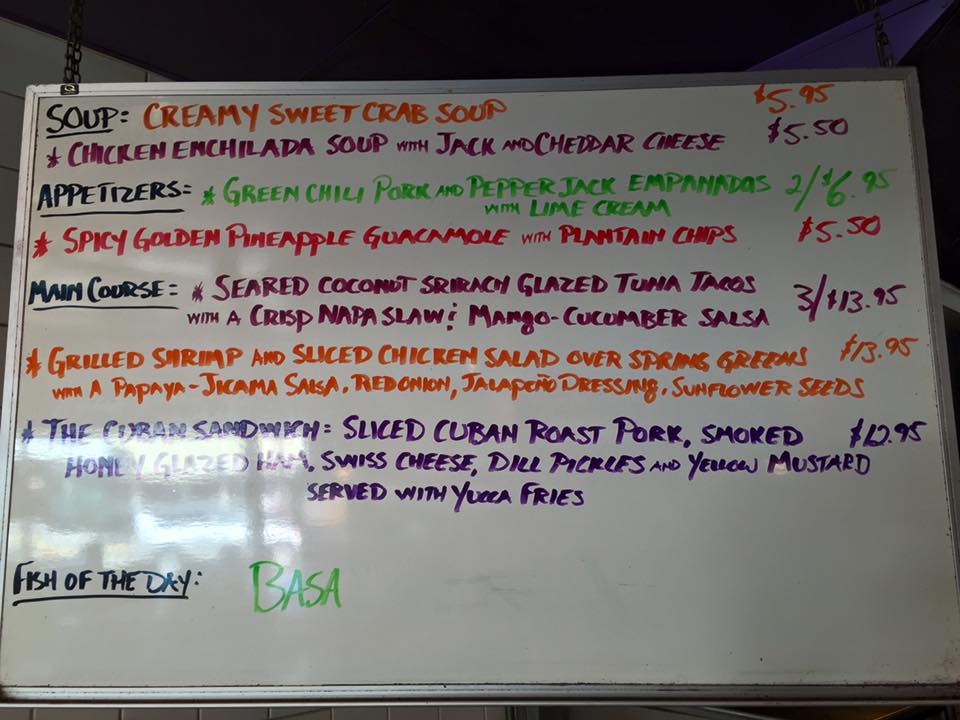 SOUP: CREAMY SWEET CRAB SOUP $5.95
* CHICKEN ENCHILADA SOUP WITH JACK AND CHEDDAR CHEESE $5.50
APPETIZERS: * GREEN CHILI PORK AND PEPPER JACK EMPANADAS 2/$6.95
WITH LIME CREAM
* SPICY GOLDEN PINEAPPLE GUACAMOLE WITH PLANTAIN CHIPS $5.50
MAIN COURSE: * SEARED COCONUT SRIRACH GLAZED TUNA TACOS 3/$13.95
WITH A CRISP NAPA SLAW & MANGO-CUCUMBER SALSA
* GRILLED SHRIMP AND SLICED CHICKEN SALAD OVER SPRING GREENS $13.95
WITH A PAPAYA-JICAMA SALSA, RED ONION, JALAPEÑO DRESSING, SUNFLOWER SEEDS
* THE CUBAN SANDWICH: SLICED CUBAN ROAST PORK, SMOKED $12.95
HONEY GLAZED HAM, SWISS CHEESE, DILL PICKLES AND YELLOW MUSTARD
SERVED WITH YUCCA FRIES
FISH OF THE DAY: BASA